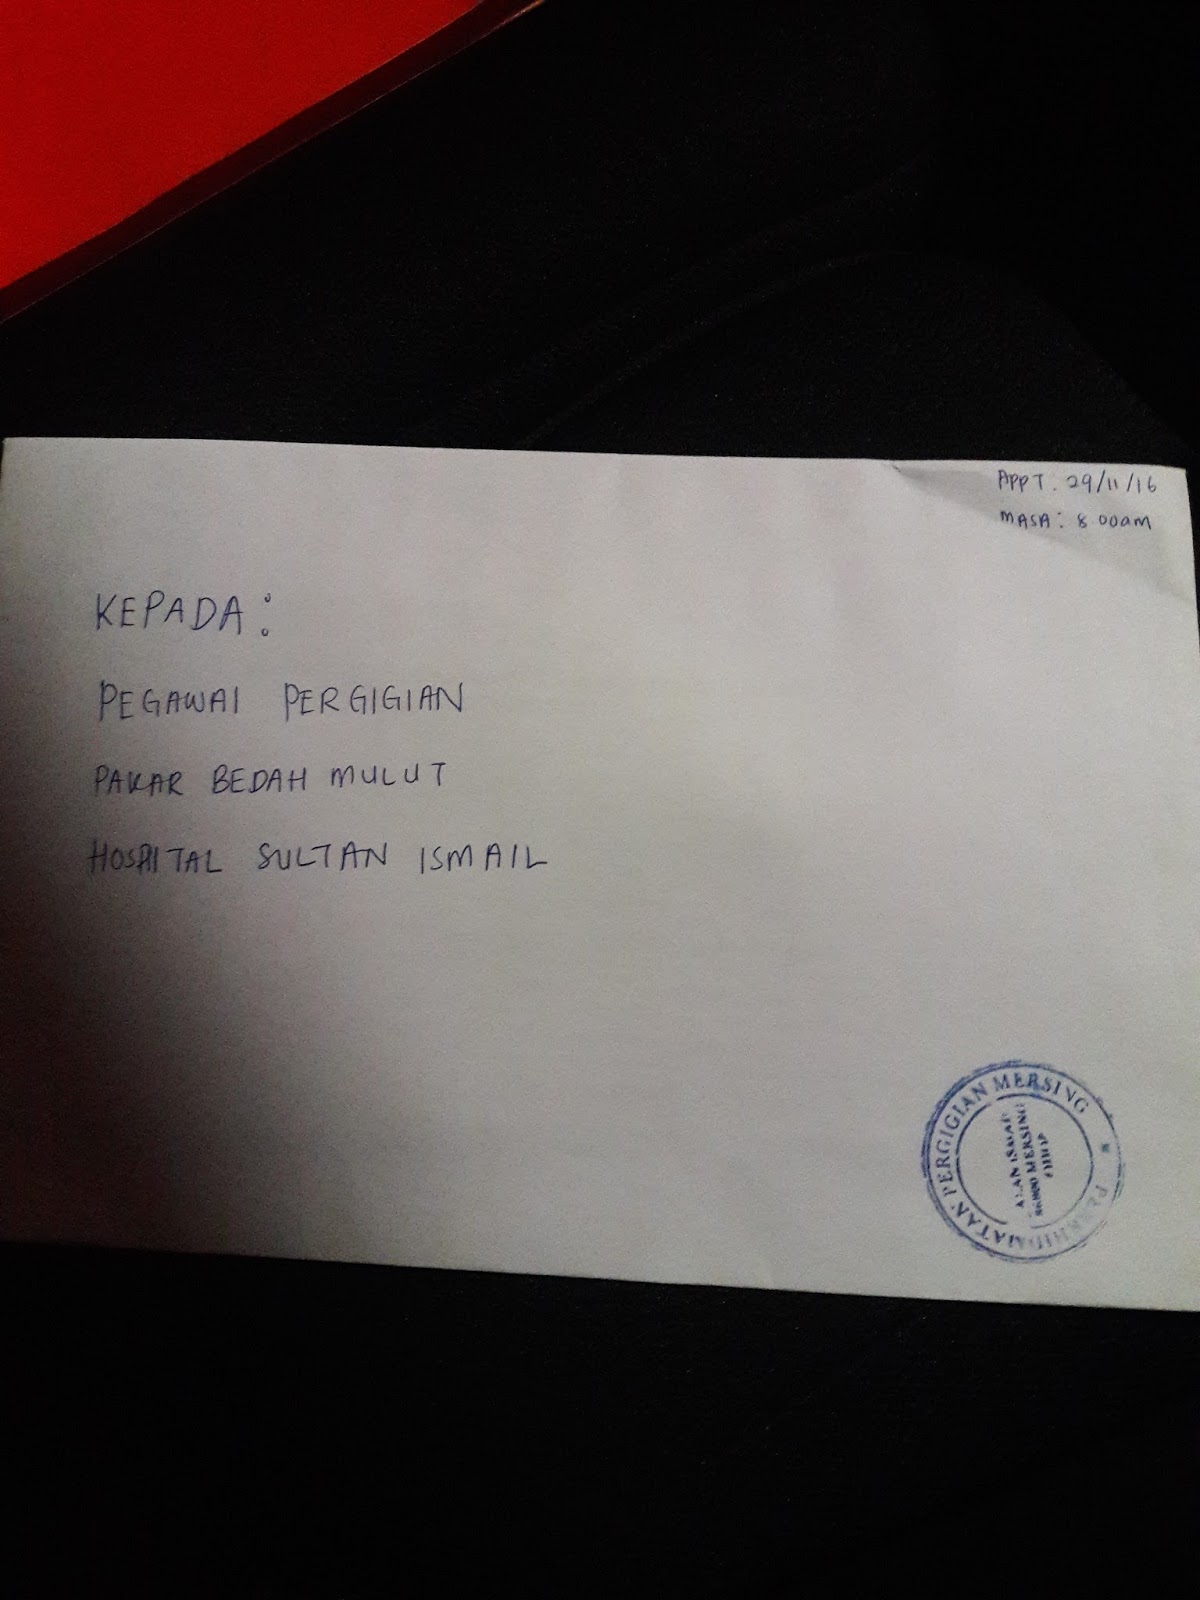 APPT. 29/11/16
MASA: 8.00am
KEPADA:
PEGAWAI PERGIGIAN
PAKAR BEDAH MULUT
HOSPITAL SULTAN ISMAIL
PERKHIDMATAN PERGIGIAN MERSING
JALAN ISMAIL
86800 MERSING
JOHOR